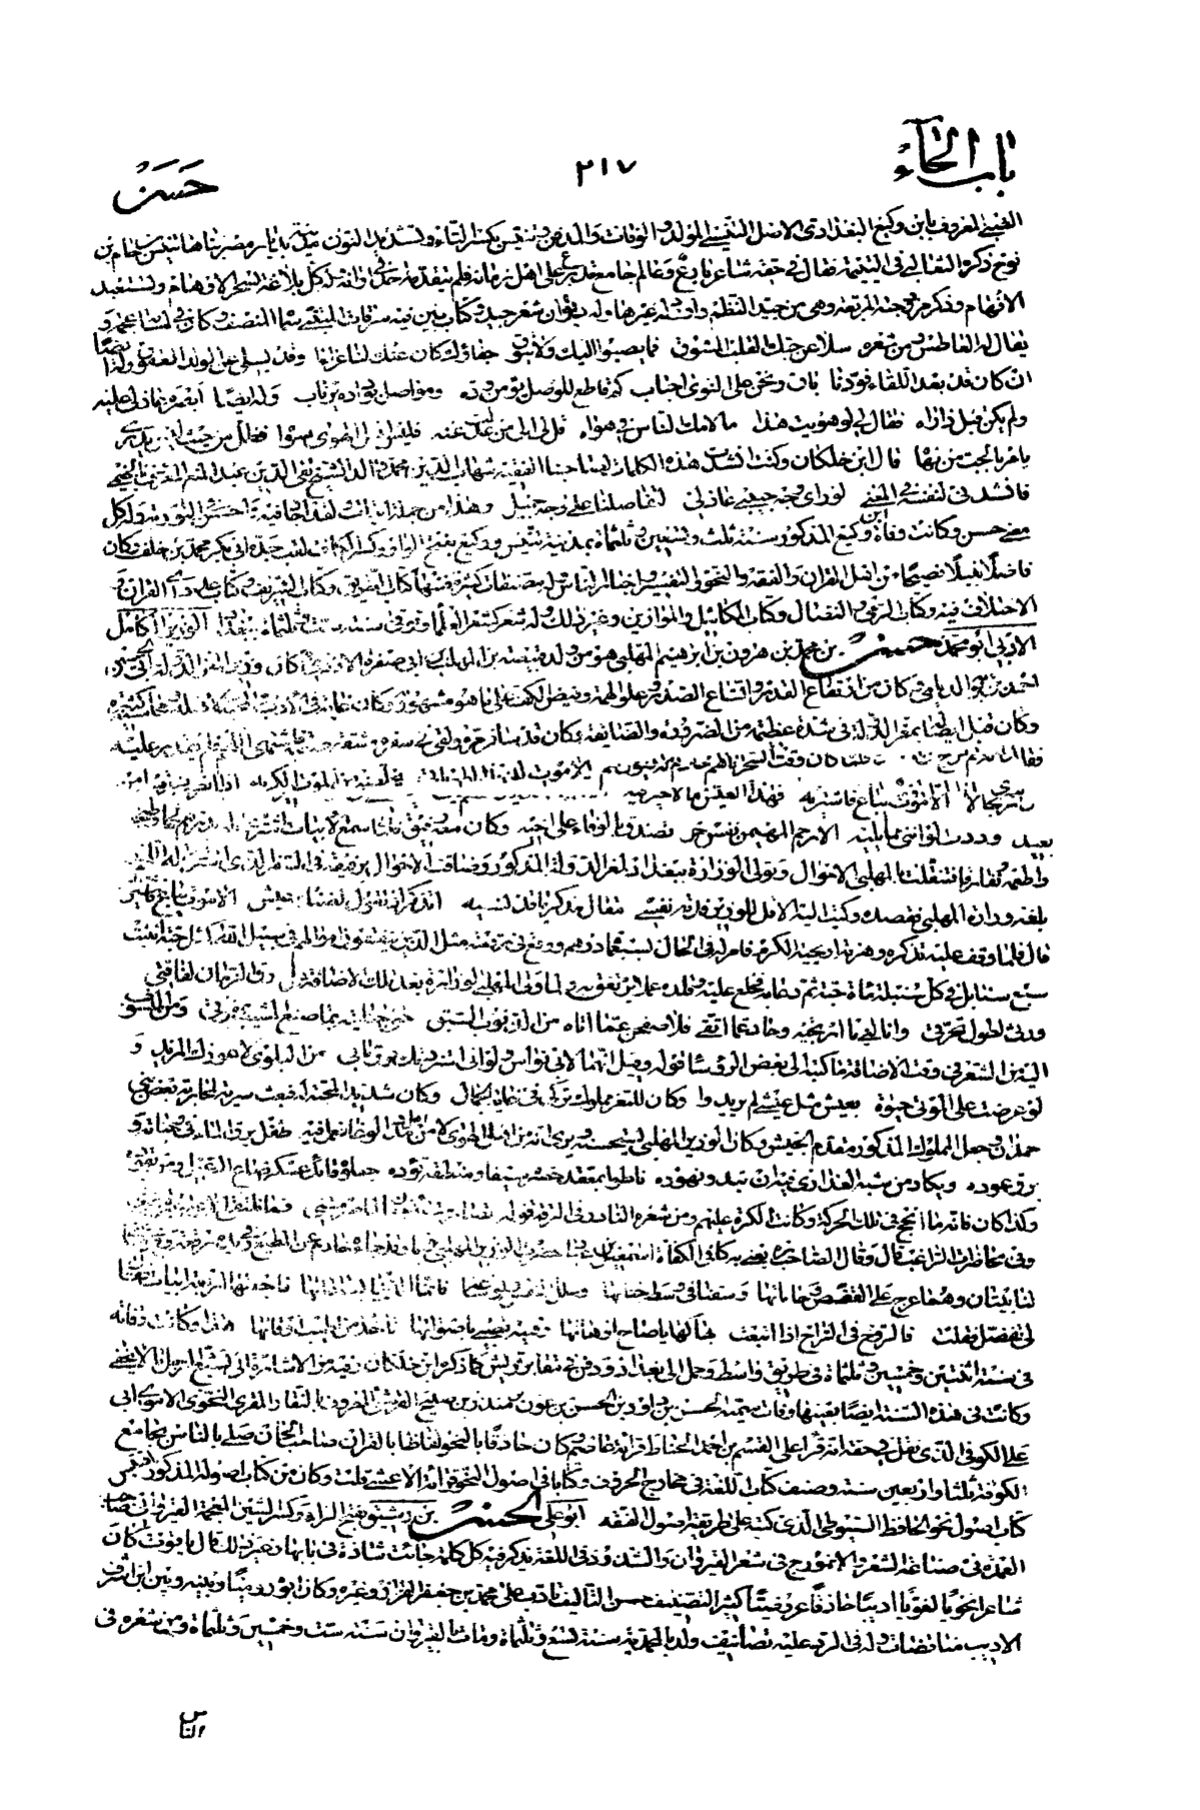 باب الحاء
٢١٧
حسن
المعروف بابن وكيع البغدادي الاصل التنيسي المولد والوفاة والدفن وتنيس بكسر التاء وتشديد النون بديار مصر بناها تنيس بن حام بن
نوح ذكره الثعالبي في اليتيمة فقال في حقه شاعر بارع وعالم جامع قد برع على اهل زمانه فلم يتقدمه احد في اوانه وله كل بديعة تسحر الاوهام وتستعبد
الافهام وذكر مزدوجته المربعة وهي من جيد النظم وله ديوان شعر جيد وكتاب بين فيه سرقات المتنبي سماه المنصف وكان في لسانه عجمة و
يقال له العاطس ومن شعره سلا عن حبك القلب المشوق فما يصبو اليك ولا يتوق جفاؤك كان عنك لنا عزاء وقد يسلي عن الولد العقوق وله ايضا
ان كان قد بعد اللقاء فودنا باق ونحن على النوى احباب كم قاطع للوصل يؤمن وده ومواصل بوداده يرتاب وله ايضا ابصره عاذلي عليه
ولم يكن قبل ذا رآه فقال لي لو هويت هذا ما لامك الناس في هواه قل لي الى من عدلت عنه فليس اهل الهوى سواه فظل من حيث ليس يدري
يامر بالحب من نهاه قال ابن خلكان وكنت انشدت هذه الكلمات لصاحبنا الفقيه شهاب الدين محمد ولد الشيخ تقي الدين عبد المنعم المعروف بالخيمي
فانشدني لنفسه في المعنى لو رأى وجه حبيبي عاذلي لتفاصلنا على وجه جميل وهذا من جملة ابيات لقد اجاد فيه واحسن في التورية وله كل
معنى حسن وكانت وفاة ابن وكيع المذكور سنة ثلث وتسعين وثلثمائة بمدينة تنيس ووكيع بفتح الواو وكسر الكاف لقب جده ابي بكر محمد بن خلف وكان
فاضلا نبيلا فصيحا من اهل القران والفقه والنحو والسير واخبار الناس وله مصنفات كثيرة فمنها كتاب الطريق وكتاب الشريف وكتاب عدد آي القران و
الاختلاف فيه وكتاب الرمي والنضال وكتاب المكاييل والموازين وغير ذلك وله شعر كشعر العلماء توفي سنة ست وثلثمائة ببغداد الوزير الكامل
الاديب ابو محمد حسن بن محمد بن هرون بن ابرهيم المهلبي هو من ولد قبيصة بن المهلب ابي صفرة الازدي كان وزير معز الدولة ابي الحسين
احمد بن بويه الديلمي كان من ارتفاع القدر واتساع الصدر وعلو الهمة وفيض الكف على ما هو مشهور وكان غاية في الادب والمحبة لاهله
وكان قبل اتصاله بمعز الدولة في شدة عظيمة من الضرورة والضايقة وكان قد سافر مرة ولقي في سفره مشقة صعبة واشتهى اللحم فلم يقدر عليه
فقال ارتجالا الا موت يباع فاشتريه فهذا العيش ما لا خير فيه
وددت لو انني مما يليه الا رحم المهيمن نفس حر تصدق بالوفاة على اخيه وكان معه رفيق فلما سمع الابيات اشترى له بدرهم لحما وطبخه
واطعمه وتفارقا وتنقلت بالمهلبي الاحوال وتولى الوزارة ببغداد لمعز الدولة المذكور وضاقت الاحوال برفيقه في السفر الذي اشترى له اللحم
بلغه وزارة المهلبي فقصده وكتب اليه الا قل للوزير فدته نفسي مقال مذكر ما قد نسيه اتذكر اذ تقول لضنك عيش الا موت يباع فاشتريه
قال فلما وقف عليه تذكره وهزته اريحية الكرم فامر له في الحال بسبعمائة درهم ووقع في رقعته مثل الذين ينفقون اموالهم في سبيل الله كمثل حبة انبتت
سبع سنابل في كل سنبلة مائة حبة ثم دعا به فخلع عليه وقلده عملا يرتفق به ولما ولي المهلبي الوزارة بعد تلك الاضاقة قال رق الزمان لفاقتي
ورثى لطول تحرقي وانالني ما ارتجيه وحاد عما اتقي فلاصفحن عما اتاه من الذنوب السبق حتى جنايته بما صنع المشيب بمفرقي ومن المنسوب
اليه من الشعر في وقت الاضاقة ما كتبه الى بعض الرؤسا قوله وقيل انها لابي نواس ولو اني استزدتك فوق ما بي من البلوى لاعوزك المزيد و
لو عرضت على الموتى حيوة بعيش مثل عيشي لم يريدوا وكان للمعز مملوك تركي في غاية الجمال وكان شديد المحبة له فبعث سرية لمحاربة بعض بني
حمدان وجعل المملوك المذكور مقدم الجيش وكان الوزير المهلبي يستحسنه ويرى انه من اهل الهوى لا من اهل الوغا فعمل فيه طفل يرق الماء في وجناته و
يرق عوده ويكاد من شبه العذارى فيه ان تبدو نهوده ناطوا بمعقد خصره سيفا ومنطقة تؤده جعلوه قائد عسكر ضاع الرعيل ومن يقوده
وكذا كان فانه ما انجح في تلك الحركة وكانت الكرة عليهم ومن شعره النادر في الرقة قوله
وفي محاضرات الراغب قال وقال الصاحب
لنا بيتان وهما عرج على القفص وحاناتها وسقني في وسط جناتها
لي تفضل فقلت فالروح في الراح اذا اتبعت هذا وكانت وفاته
في سنة اثنتين وخمسين وثلثمائة في طريق واسط وحمل الى بغداد ودفن في مقابر قريش كما ذكره ابن خلكان وفيه من الاشارة الى تشيع الرجل ما لا يخفى
وكانت في هذه السنة ايضا بعينها وفاة سميه الحسن بن داود بن الحسن بن عون بن منذر بن صبيح القرشي المعروف بالنقار المقري النحوي الاموي ابي
علي الكوفي الذي نقل في حقه انه قرأ على القسم بن احمد الخياط قراءة عاصم وكان حاذقا بالنحو لفاظا بالقرآن صاحب الحان صلى بالناس بجامع
الكوفة ثلثا واربعين سنة وصنف كتاب اللغة في مخارج الحروف وكتابا في اصول النحو قراءة الاعشى قلت وكان من كتاب اصوله المذكور اقتبس
كتاب اصول نحو الحافظ السيوطي الذي كتبه على طريقة اصول الفقه ابو علي الحسن بن رشيق بفتح الراء وكسر الشين المعجمة القيرواني صاحب
العمدة في صناعة الشعر والانموذج في شعر القيروان والشذوذ في اللغة يذكر فيه كل كلمة جاءت شاذة في بابها وغير ذلك قال ياقوت كان
شاعرا نحويا لغويا اديبا حاذقا عروضيا كثير التصنيف حسن التاليف تادب على محمد بن جعفر القزاز وغيره وكان ابوه روميا وبينه وبين ابن شرف
الاديب مناقضات وله في الرد عليه تصانيف ولد بالمحمدية سنة تسع وثلثمائة ومات بالقيروان سنة ست وخمسين وثلثمائة ومن شعره في
الناس